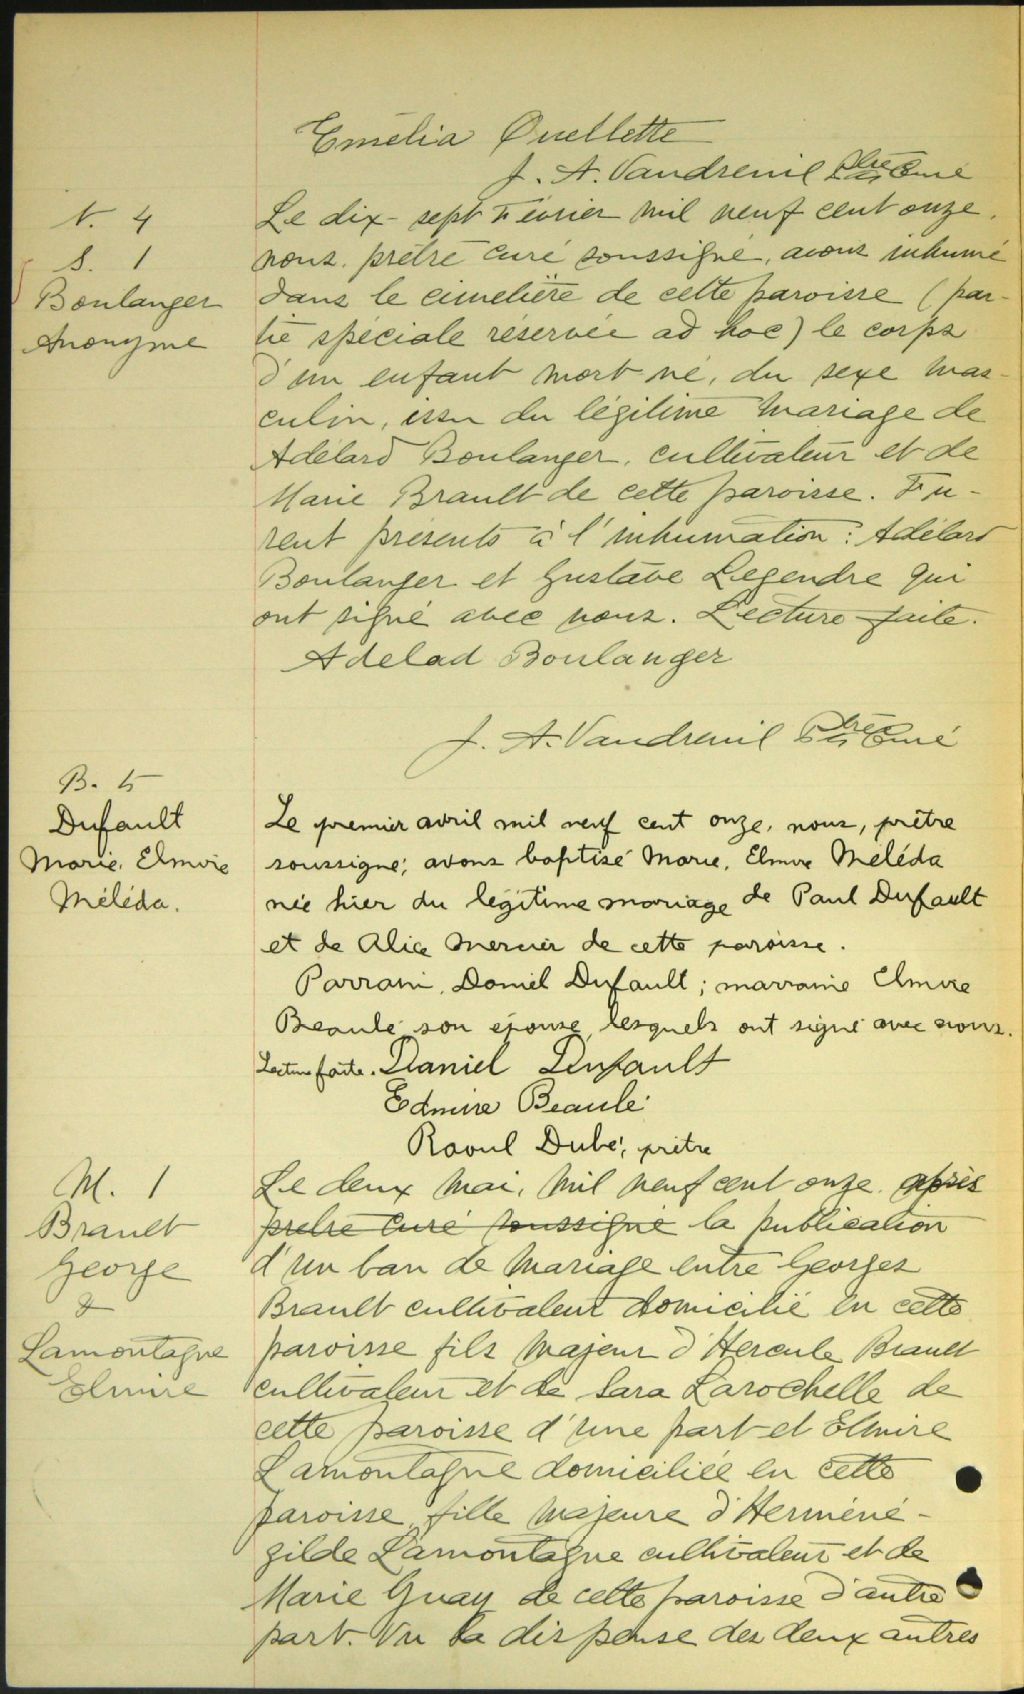 Emélia Ouellette
J. A. Vaudreuil Ptre Curé
N. 4
S. 1
Boulanger
Anonyme
Le dix-sept Février mil neuf cent onze,
nous prêtre curé soussigné, avons inhumé
dans le cimetière de cette paroisse (par-
tie spéciale réservée ad hoc) le corps
d'un enfant mort né, du sexe mas-
culin, issu du légitime mariage de
Adélard Boulanger, cultivateur et de
Marie Brault de cette paroisse. Fu-
rent présents à l'inhumation: Adélard
Boulanger et Gustave Legendre qui
ont signé avec nous. Lecture faite.
Adelad Boulanger
J. A. Vaudreuil Ptre Curé
B. 5
Dufault
Marie, Elmire
Méléda.
Le premier avril mil neuf cent onze, nous, prêtre
soussigné, avons baptisé Marie, Elmire Méléda
née hier du légitime mariage de Paul Dufault
et de Alice Mercier de cette paroisse.
Parrain, Daniel Dufault; marraine Elmire
Beaulé son épouse, lesquels ont signé avec nous.
Lecture faite. Daniel Dufault
Edmire Beaulé
Raoul Dubé, prêtre
M. 1
Brault
George
&
Lamontagne
Elmire
Le deux mai, mil neuf cent onze, après
prêtre curé soussigné la publication
d'un ban de mariage entre Georges
Brault cultivateur domicilié en cette
paroisse fils majeur d'Hercule Brault
cultivateur et de Sara Larochelle de
cette paroisse d'une part et Elmire
Lamontagne domiciliée en cette
paroisse, fille majeure d'Herméné-
gilde Lamontagne cultivateur et de
Marie Guay de cette paroisse d'autre
part. Vu la dispense des deux autres